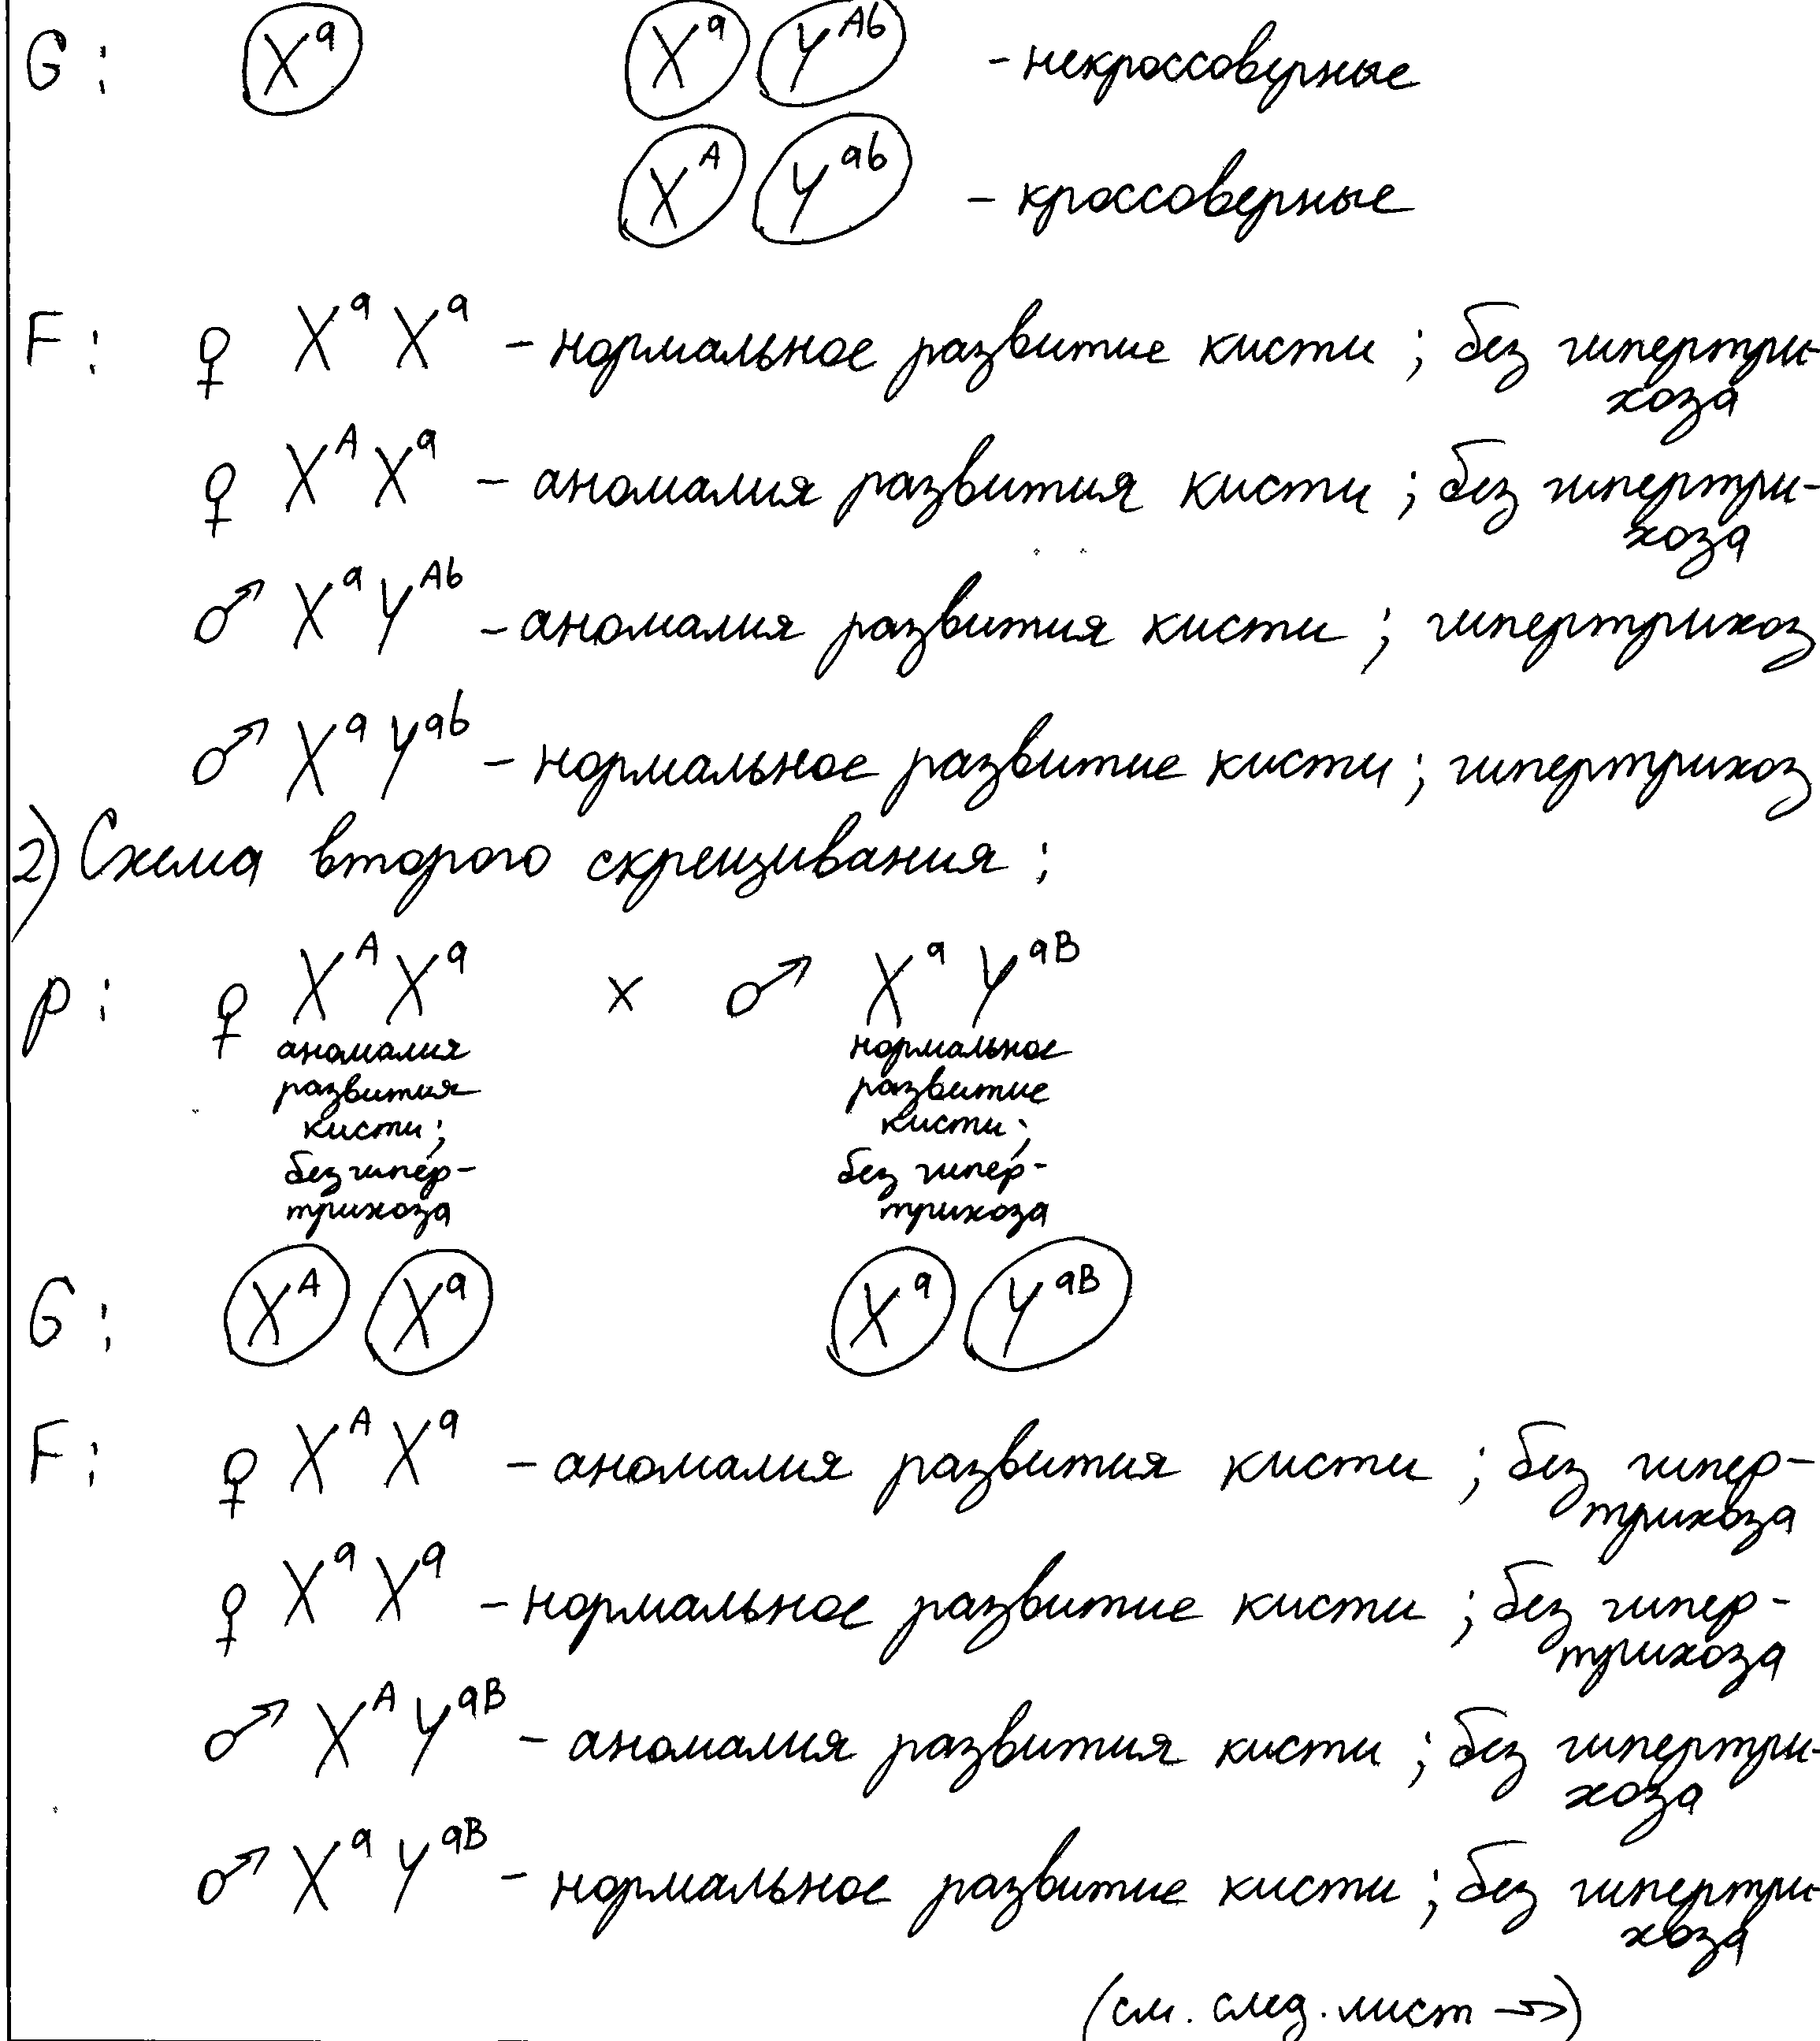 G: X^a X^a Y^Ab - некроссоверные
X^A Y^ab - кроссоверные
F: ♀ X^a X^a - нормальное развитие кисти; без гипертри-
хоза
♀ X^A X^a - аномалия развития кисти; без гипертри-
хоза
♂ X^a Y^Ab - аномалия развития кисти; гипертрихоз
♂ X^a Y^ab - нормальное развитие кисти; гипертрихоз
2) Схема второго скрещивания:
P: ♀ X^A X^a x ♂ X^a Y^aB
аномалия нормальное
развития развитие
кисти; кисти;
без гипер- без гипер-
трихоза трихоза
G: X^A X^a X^a Y^aB
F: ♀ X^A X^a - аномалия развития кисти; без гипер-
трихоза
♀ X^a X^a - нормальное развитие кисти; без гипер-
трихоза
♂ X^A Y^aB - аномалия развития кисти; без гипертри-
хоза
♂ X^a Y^aB - нормальное развитие кисти; без гипертри-
хоза
(см. след. лист →)